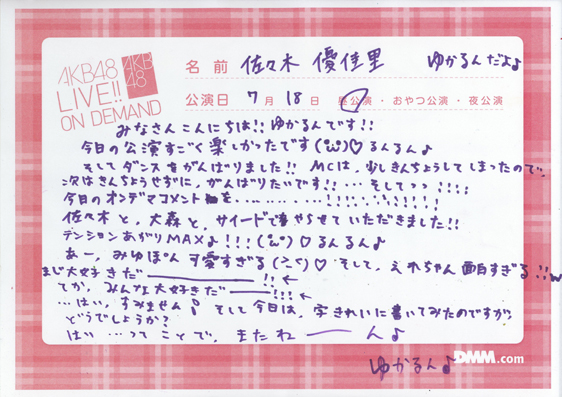 AKB48
LIVE!!
ON DEMAND
AKB
48
名前 佐々木 優佳里 ゆかるんだよ♪
公演日 7月18日 昼公演・おやつ公演・夜公演
みなさんこんにちは!! ゆかるんです!!
今日の公演すごく楽しかったです(ᵕ̈)♡るんるん♪
そしてダンスをがんばりました!! MCは、少しきんちょうしてしまったので、
次はきんちょうせずに、がんばりたいです!! … そしてっっ !!!!
今日のオンデマコメントを、………… !!!
佐々木と、大森と、サイードでやらせていただきました!!
テンションあがりMAX♪!!! るんるん♪
あー、みゆぽん可愛すぎる ♡ そして、えれちゃん面白すぎる!!w
まじ大好きだ―――!! ←
てか、みんな大好きだ――!!! ←
…はい、すみません! そして今日は、字きれいに書いてみたのですが、
どうでしょうか?
はい …ってことで、またね〜ん♪
ゆかるん♪
DMM.com